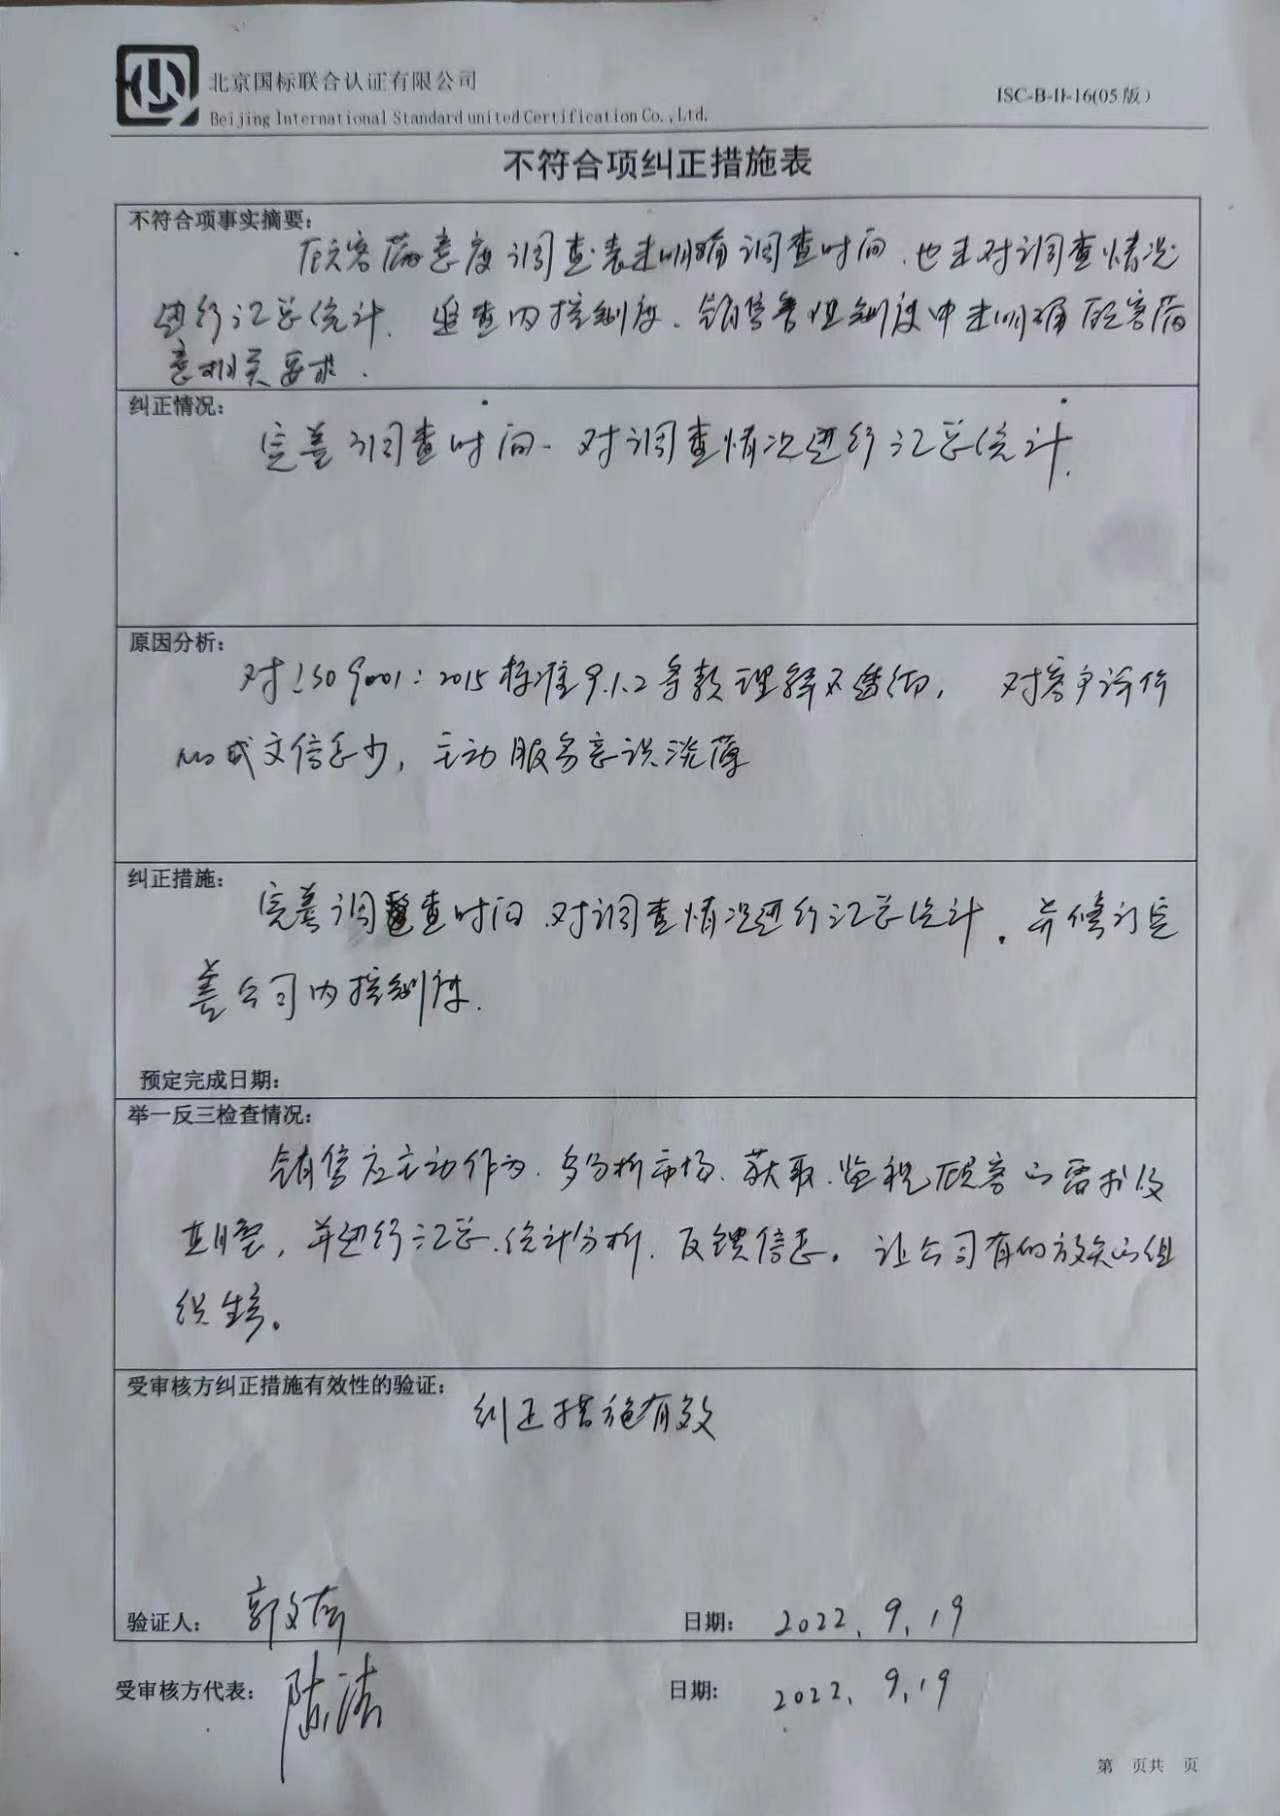 北京国标联合认证有限公司
Beijing International Standard united Certification Co.,Ltd.
ISC-B-II-16(05版)
不符合项纠正措施表
不符合项事实摘要:
顾客满意度调查表未明确调查时间、也未对调查情况
进行汇总统计. 追查内控制度、销售管理制度中未明确顾客满
意相关要求.
纠正情况:
完善调查时间、对调查情况进行汇总统计.
原因分析:
对ISO9001:2015标准9.1.2条款理解不透彻, 对客户评价
的成文信息少, 主动服务意识淡薄
纠正措施:
完善调查时间、对调查情况进行汇总统计. 并修订完
善公司内控制度.
预定完成日期:
举一反三检查情况:
销售应主动作为、多分析市场、获取、监视顾客的需求及
期望, 并进行汇总、统计分析、反馈信息。让公司有的放矢的组
织生产。
受审核方纠正措施有效性的验证:
纠正措施有效
验证人: 郭文 日期: 2022.9.19
受审核方代表: 陈洁 日期: 2022.9.19
第 页共 页